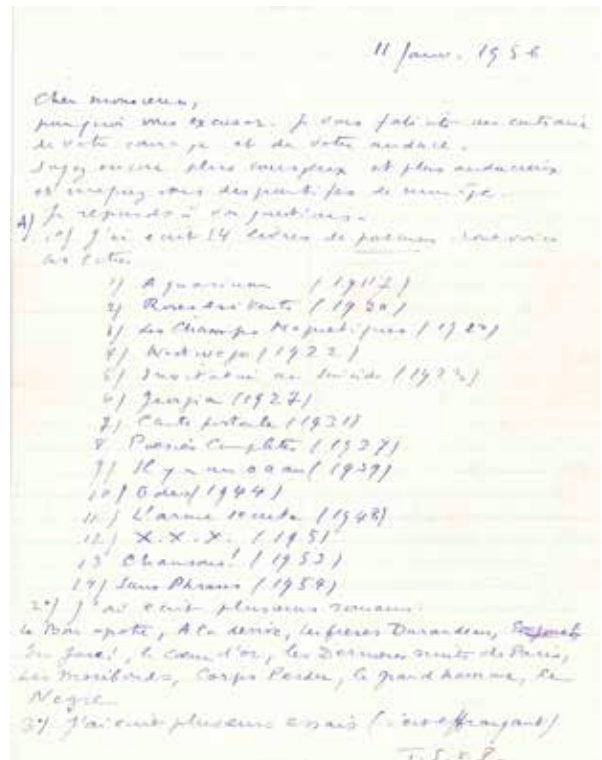 11 Janv. 1956
Cher monsieur,
pourquoi vous excuser. Je vous félicite au contraire
de votre courage et de votre audace.
Soyez encore plus courageux et plus audacieux
et
A) Je réponds à vos questions.
1°) J'ai écrit 14 livres de poèmes dont voici
les titres
1) Aquarium (1917)
2) Rose des Vents (1920)
3) Les Champs Magnétiques (1920)
4) Westwego (1922)
5) Invitation au Suicide (1922)
6) Georgia (1927)
7) Carte postale (1931)
8) Poésies Complètes (1937)
9) Il y a un océan (1939)
10) Odes (1944)
11) L'arme secrète (1948)
12) X.X.X. (1951
13 Chansons! (1953)
14) Sans Phrases (1954)
2°) J'ai écrit plusieurs romans:
le Bon apôtre, A la dérive, les frères Durandeau,
En Joue!, le cœur d'or, les Dernières nuits de Paris,
Les Moribonds, Corps Perdu, le grand homme, le
Nègre
3°) J'ai écrit plusieurs essais (c'est effrayant)
T.S.V.P.